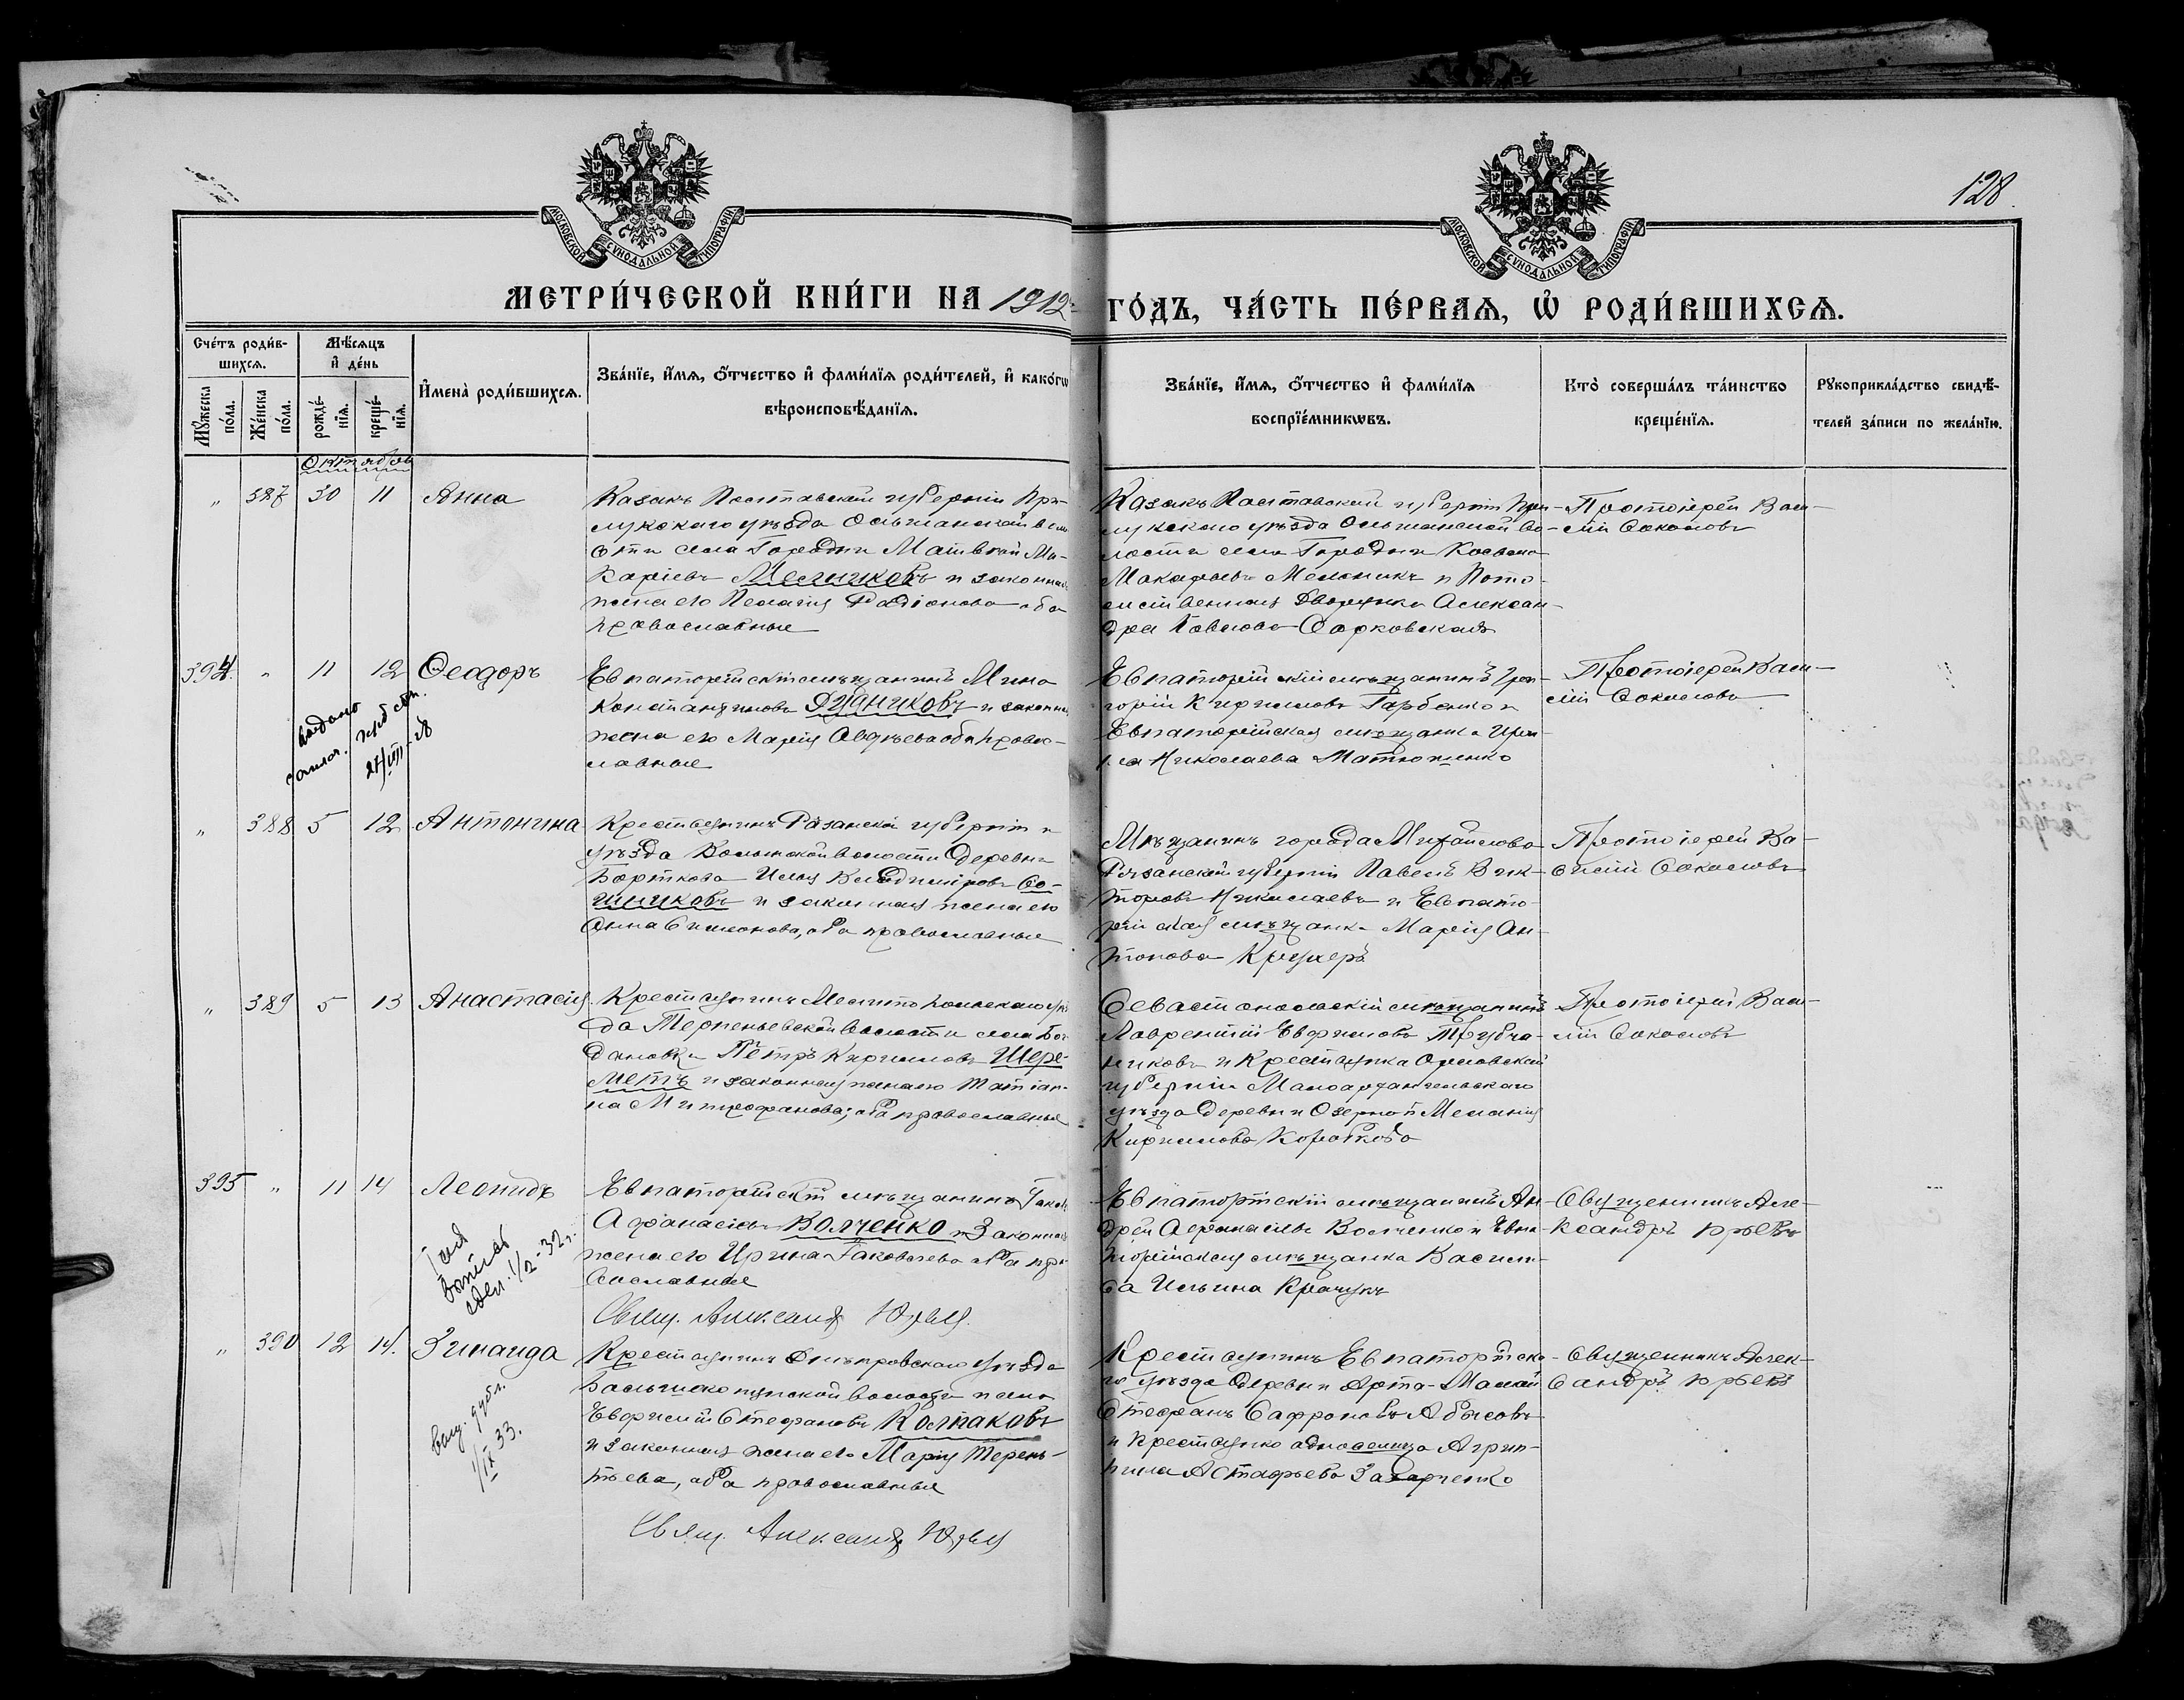 128
МОСКОВСКОЙ СѴНОДАЛЬНОЙ ТИПОГРАФІИ
МОСКОВСКОЙ СѴНОДАЛЬНОЙ ТИПОГРАФІИ
МЕТРИ́ЧЕСКОЙ КНИ́ГИ НА 1912 ГО́ДЪ, ЧА́СТЬ ПЕ́РВАѦ, Ѡ҆ РОДИ́ВШИХСѦ.
Сче́тъ роди́в-
шихсѧ.
Мꙋ́жеска по́ла.
Же́нска по́ла.
Мѣ́сѧцъ
и҆ де́нь
рожде́-
нїѧ.
креще́-
нїѧ.
И҆мена̀ роди́вшихсѧ.
Зва́нїе, и҆́мѧ, ѻ҆́тчество и҆ фами́лїѧ роди́телей, и҆ како́гѡ
вѣроисповѣ́данїѧ.
Зва́нїе, и҆́мѧ, ѻ҆́тчество и҆ фами́лїѧ
воспрїе́мникѡвъ.
Кто̀ соверша́лъ та́инство
креще́нїѧ.
Рꙋкоприкла́дство свидѣ́-
телей за́писи по жела́нїю.
Октябрь
" 387 30 11 Анна
Казакъ Полтавской губерніи При-
лукскаго уѣзда Ольшанской воло-
сти села Городни Матвѣй Ма-
каріевъ Мельниковъ и законная
жена его Пелагія Родіонова оба
православные
Казакъ Полтавской губерніи При-
лукскаго уѣзда Ольшанской во-
лости села Городни
Макарьевъ Мельникъ и Пото-
мственная Дворянка Алексан-
дра Павлова Сарковская
Протоіерей Васи-
лій Соколовъ
394 " 11 12 Ѳеодоръ
Евпаторійскій мѣщанинъ Мина
Константиновъ и законная
жена его Марія Авдѣева оба право-
славные
Евпаторійскій мѣщанинъ Гри-
горій Кирилловъ Гарбенко и
Евпаторійская мѣщанка
Николаева Матюшенко
Протоіерей Васи-
лій Соколовъ
выдано
" 388 5 12 Антонина
Крестьянинъ Рязанской губерніи и
уѣзда волости деревни
Бортково Илья Владиміровъ Со-
шниковъ и законная жена его
Анна Симеонова, оба православные
Мѣщанинъ города Михайлова
Рязанской губерніи Павелъ Вик-
торовъ Николаевъ и Евпато-
рійская мѣщанка Марія Ан-
тонова
Протоіерей Ва-
силій Соколовъ
" 389 5 13 Анастасія
Крестьянинъ Мелитопольскаго уѣз-
да Терпеньевской волости села Бог-
дановки Петръ Кирилловъ Шере-
метъ и законная жена его Татіа-
на Митрофанова; оба православные
Севастопольскій мѣщанинъ
Лаврентій Евфимовъ Трубча-
никовъ и Крестьянка Орловской
губерніи Малоархангельскаго
уѣзда деревни Озерной Меланія
Кириллова Короткова
Протоіерей Васи-
лій Соколовъ
395 " 11 14 Леонидъ
Евпаторійскій мѣщанинъ Іаковъ
Аѳанасіевъ Волченко и законная
жена его Ирина Іаковлева оба пра-
вославные
Свящ. Александръ Юрьевъ
Евпаторійскій мѣщанинъ Ан-
дрей Аѳанасіевъ Волченко и Евпа-
торійская мѣщанка Васили-
са Ильина Кравчукъ
Священникъ Але-
ксандръ Юрьевъ
1/2-32 г.
" 390 12 14. Зинаида
Крестьянинъ Днѣпровскаго уѣзда
волости и села
Евфимій Стефановъ Колпаковъ
и законная жена его Марія Терен-
тьева, оба православные
Свящ. Александръ Юрьевъ
Крестьянинъ Евпаторійска-
го уѣзда деревни Орта-Мамай
Стефанъ Сафроновъ Абысовъ
и Крестьянка односелица Агрип-
пина Астафьева Захарченко
Священникъ Алек-
сандръ Юрьевъ
выд. дубл.
1/IX 33.